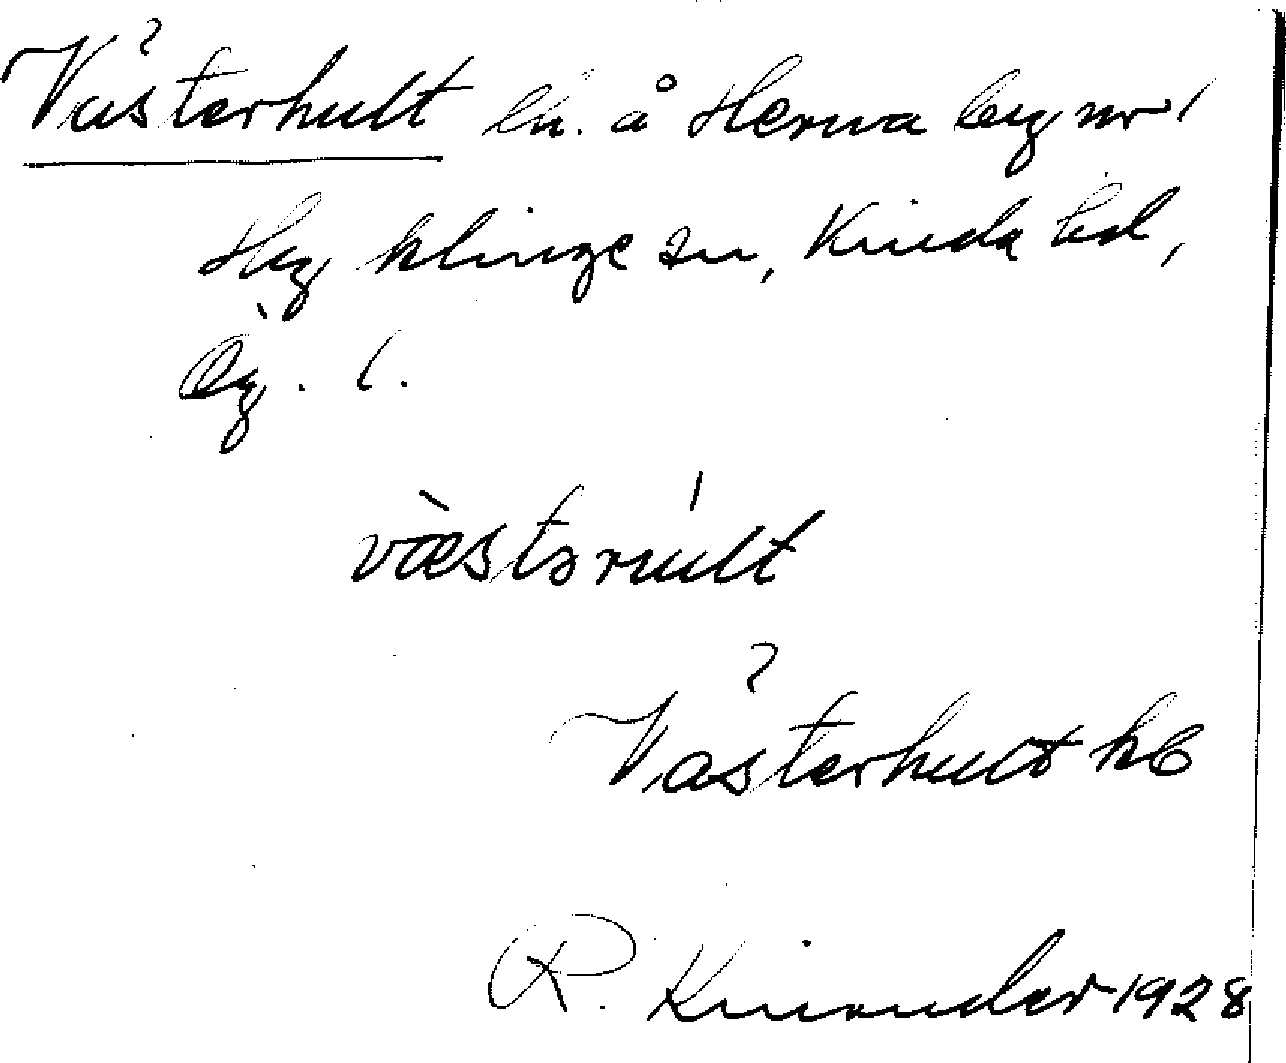 Västerhult lh. å Herrvaberg nr 1
Hägklinge sn, Kinda hd,
Ög. l.
væstərúlt
Västerhult kb
R. Kinander 1928